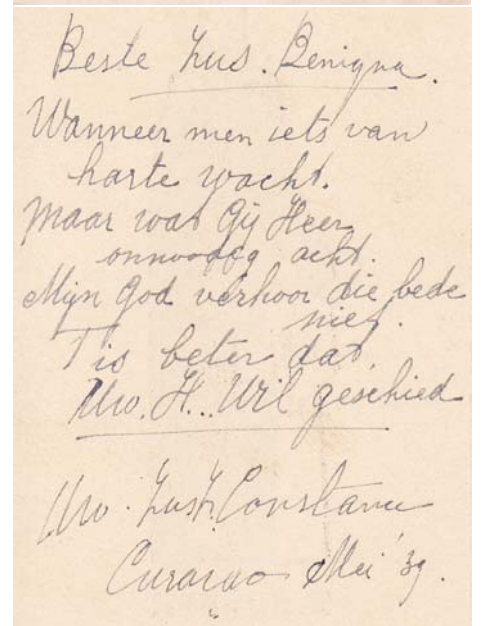 Beste Zus. Benigna.
Wanneer men iets van
harte wacht.
Maar wat Gij Heer
onnoodig acht.
Mijn God verhoor die bede
niet.
T is beter dat
Uw. H.. Wil geschied
Uw. Zust.
Curaçao Mei '39.